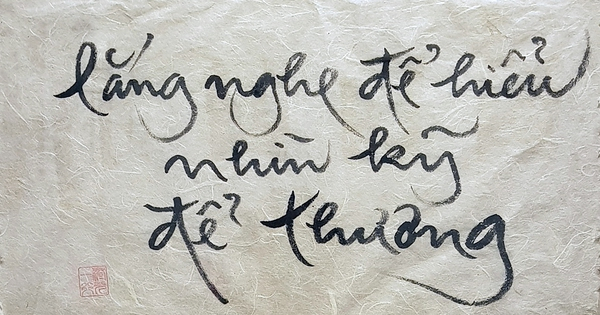 lắng nghe để hiểu
nhìn kỹ
để thương